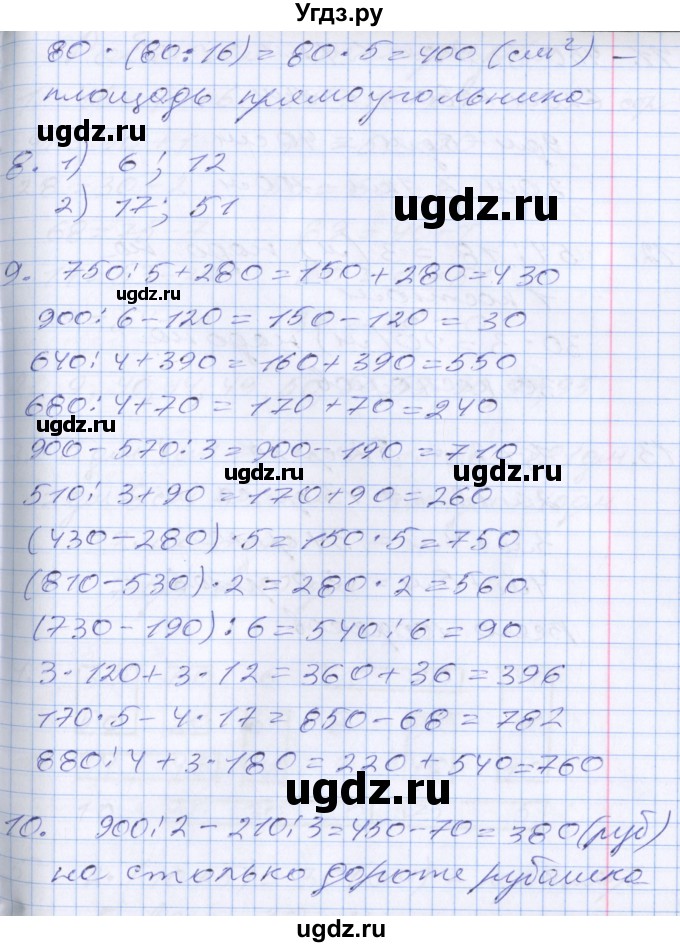 Угдз.ру
80 · (80:16) = 80 · 5 = 400 (см²) –
площадь прямоугольника
ugdz.ru
8. 1) 6; 12
ugdz.ru
2) 17; 51
9. 750:5+280=150+280=430
ugdz.ru
900:6-120=150-120=30
640:4+390=160+390=550
680:4+70=170+70=240
ugdz.ru
900-570:3=900-190=710
ugdz.ru
510:3+90=170+90=260
(430-280)·5=150·5=750
(810-530)·2=280·2=560
(730-190):6=540:6=90
3·120+3·12=360+36=396
170·5-4·17=850-68=782
880:4+3·180=220+540=760
ugdz.ru
10. 900:2-210:3=450-70=380(руб)
на столько дороже рубашка